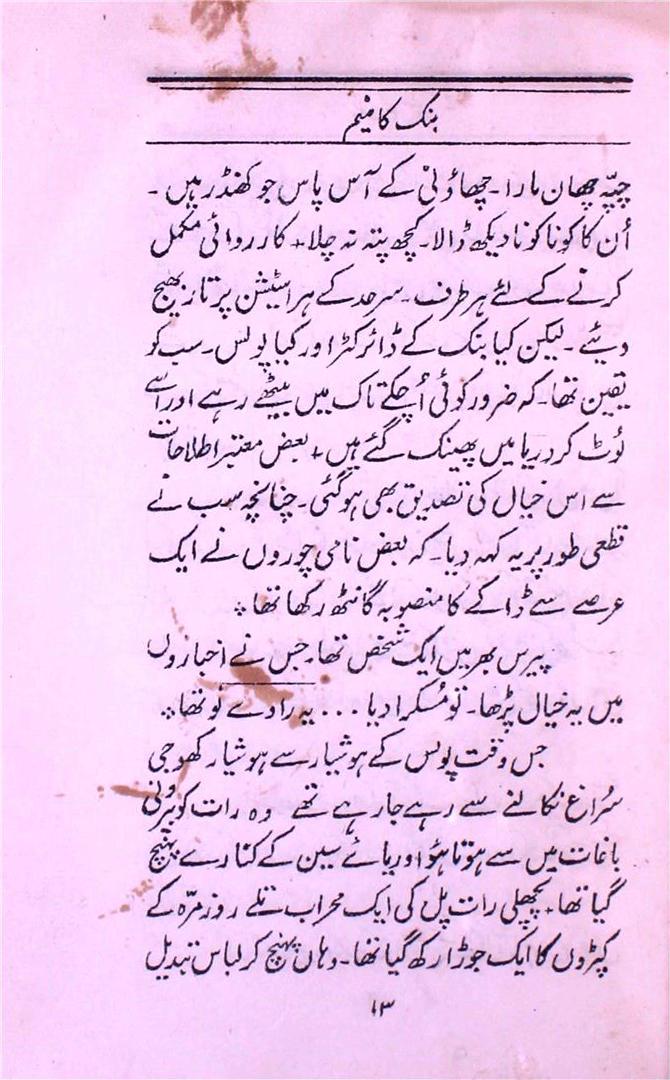 بنک کا منیم
چپّہ چھان مارا۔ چھاؤنی کے آس پاس جو کھنڈر ہیں۔
اُن کا کونا کونا دیکھ ڈالا۔ کچھ پتہ نہ چلا۔ کارروائی مکمل
کرنے کے لئے ہر طرف۔ سرحد کے ہر اسٹیشن پر تار بھیج
دیئے۔ لیکن کیا بنک کے ڈائرکٹر اور کیا پولس۔ سب کو
یقین تھا۔ کہ ضرور کوئی اُچکے تاک میں بیٹھے رہے اور اسے
لُوٹ کر دریا میں پھینک گئے ہیں۔ بعض معتبر اطلاعات
سے اس خیال کی تصدیق بھی ہو گئی۔ چنانچہ سب نے
قطعی طور پر یہ کہہ دیا۔ کہ بعض نامی چوروں نے ایک
عرصے سے ڈاکے کا منصوبہ گانٹھ رکھا تھا۔
پیرس بھر میں ایک شخص تھا۔ جس نے اخباروں
میں یہ خیال پڑھا۔ تو مُسکرا دیا ... یہ رادے نو تھا۔
جس وقت پولس کے ہوشیار سے ہوشیار کھوجی
سُراغ نکالنے سے رہے جا رہے تھے وہ رات کو بیرونی
باغات میں سے ہوتا ہؤا دریائے سین کے کنارے پہنچ
گیا تھا۔ پچھلی رات پل کی ایک محراب تلے روزمرّہ کے
کپڑوں کا ایک جوڑا رکھ گیا تھا۔ وہاں پہنچ کر لباس تبدیل
۱۳